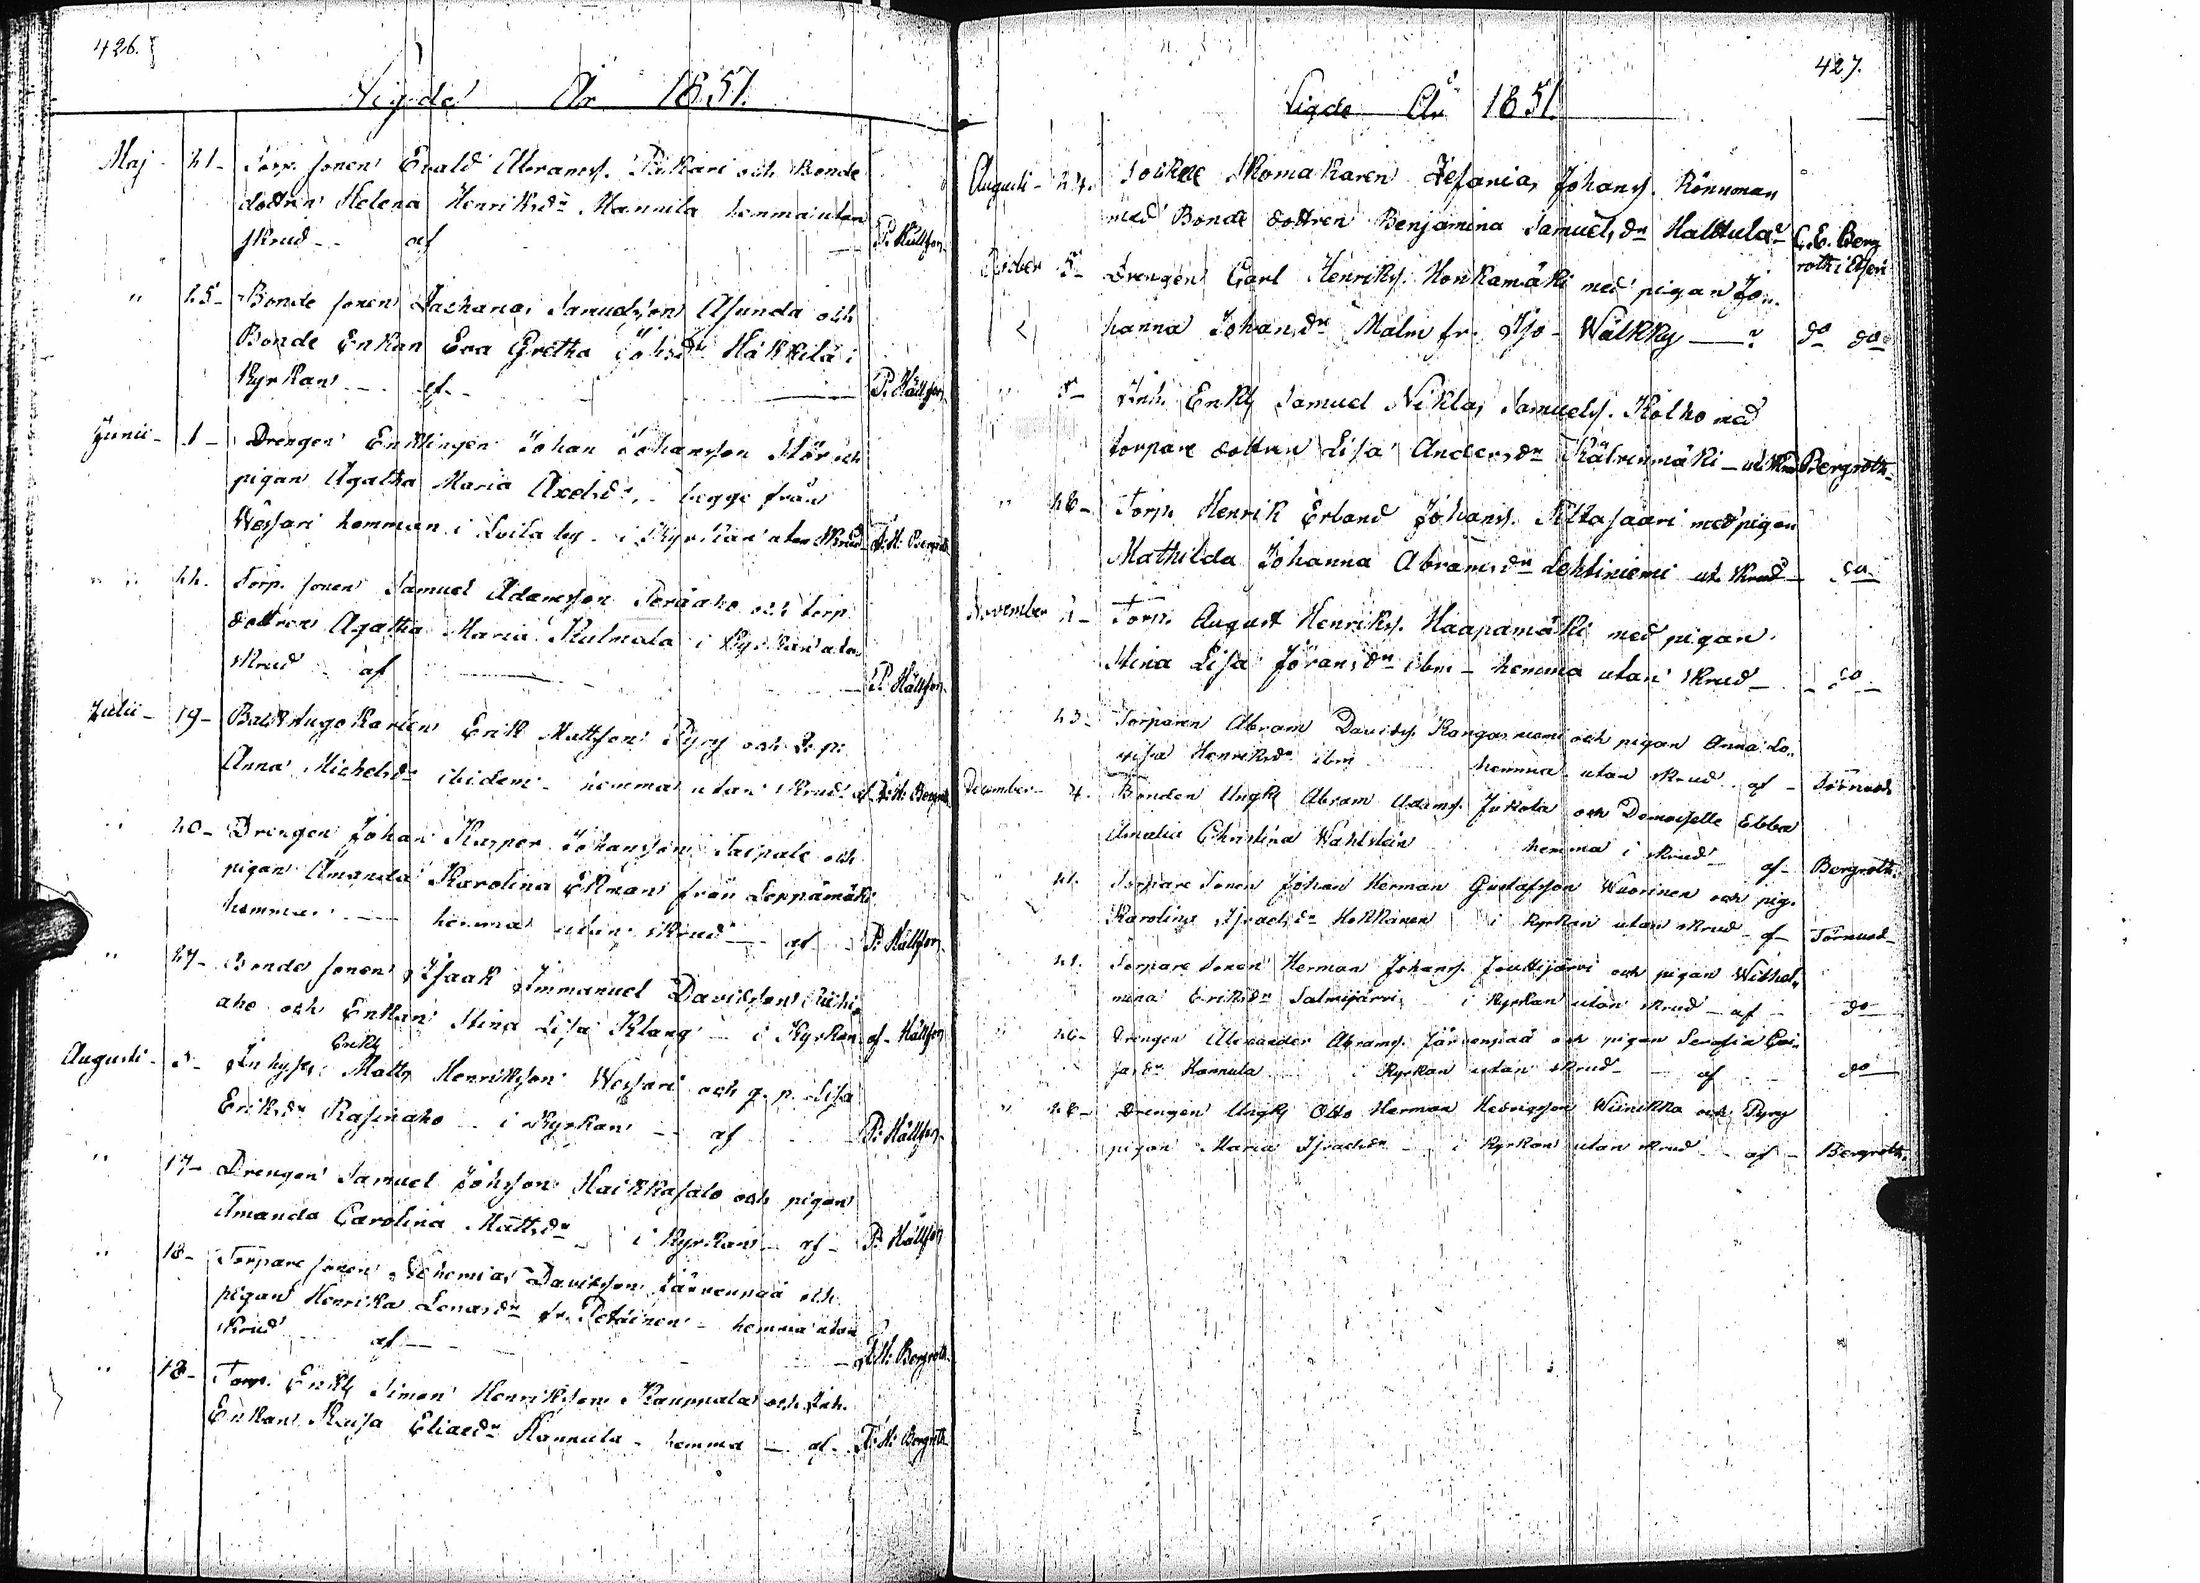 426.
Vigde År 1851.
Maj - 21 - Torp. sonen Evald Abramss. Pukari och Bonde
dottren Helena Henriksdr Mannila hemma utan
skrud - - af - P. Hällfors
" 25 - Bonde sonen Zacharias Samuelsson Asunda och
Bonde Enkan Eva Gretha Johsdr Häkkilä i
Kyrkan - - af - - P. Hällfors
Junii - 1 - Drengen Enklingen Johan Johansson Stör och
pigan Agatha Maria Axelsdr, begge från
Wessari hemman i Loila by - i Kyrkan utan skrud F: H: Bergroth
" " 22. Torp. sonen Samuel Adamsson Peräaho och torp.
dottren Agatha Maria Kulmala i Kyrkan utan
skrud af - P. Hällfors
Julii - 19 - Backstugokarlen Erik Mattsson Pyry och
Anna Michelsdr ibidem - hemma utan skrud af F: H: Bergroth
" 20 - Drengen Johan Kasper Johansson Taipale och
pigan Amanda Karolina Ekman från Leppämäki
hemman - hemma utan skrud - af - P: Hällfors
" 27 - Bonde sonen Isaak Immanuel Davidsson Riihi
aho och Enkan Stina Lisa Klang - i Kyrkan af - Hällfors
Enkl
Augusti - 3 - Inhyses Matts Henriksson Wessari och q. p. Lisa
Eriksdr Rasinaho - i Kyrkan - af P: Hällfors
" 17 - Drengen Samuel Johsson Haikkasalo och pigan
Amanda Carolina Mattsdr - i Kyrkan - af - P: Hällfors
" 18 - Torpare sonen Nehemias Davidsson Järvenpää och
pigan Henrika Lenasdr fr. Petäinen - hemma utan
skrud af - F: H: Bergroth
" 18 - Torp. Enkl Simon Henriksson Kaunnala och Inh.
Enkan Kaisa Eliaedr Kannula - hemma - af - F: H: Bergroth
427.
Vigde År 1851.
Augusti - 24. Sockne Skomakaren Zefanias Johanss. Rönnman
med Bonde dottren Benjamina Samuelsdr Halttula C. E. Berg
roth i Etseri
October 5 - Drengen Carl Henrikss. Honkamäki med pigan Jo-
hanna Johansdr Malm fr. Wälkky - do do
" 5 - Inh. Enkl Samuel Niklas Samuelss. Kolho med
torpare dottren Lisa Andersdr Kälvinmäki - Bergroth
" 26 - Torp. Henrik Erland Johanss. Pittasaari med pigan
Mathilda Johanna Abramsdr Lehtiniemi ut. skrud - do
November 2 - Torp. August Henrikss. Haapamäki med pigan
Stina Lisa Göransdr ibm - hemma utan skrud - - do -
23 - Torparen Abram Davidss. Kangasniemi och pigan Anna Lo-
visa Henriksdr ibm hemma utan skrud af - Törnudd
December - 4. Bonden Ungk Abram Adamss. Jukola och Demoiselle Ebba
Amalia Christina Wahlstein hemma i skrud - af - Bergroth.
" 21. Torpare Sonen Johan Herman Gustafsson Wuorinen och pig.
Karolina Isracsdr Hokkanen i Kyrkan utan skrud - af - Törnudd
21. Torpare Sonen Herman Johanss. Jouttijärvi och pigan Wilhel-
mina Eriksdr Salmijärvi i Kyrkan utan skrud - af - do
" 26 - Drengen Alexander Abramss. Järvenpää och pigan Serafia
Hannula i Kyrkan utan skrud - af - do
" 28 - Drengen Ungk Otto Herman Hedrigsson Wiinikka och Pyry
pigan Maria Isracsdr - i Kyrkan utan skrud - af - Bergroth.